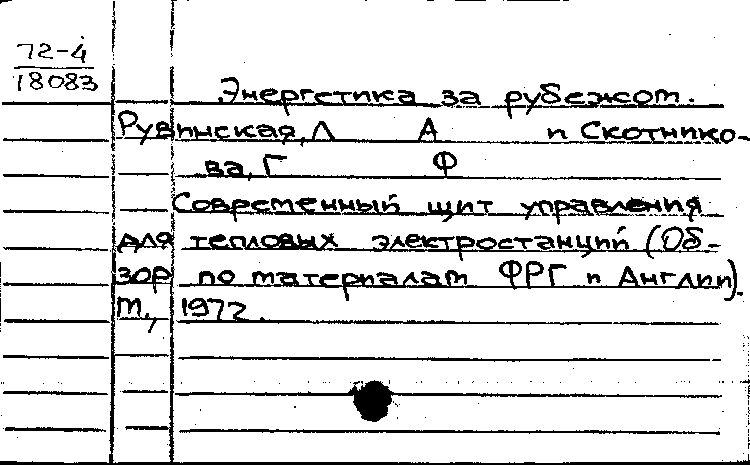 72-4
18083
Энергетика за рубежом.
Рувинская, Л А и Скотнико-
ва, Г Ф
Современный щит управления
для тепловых электростанций (Об-
зор по материалам ФРГ и Англии).
М., 1972.